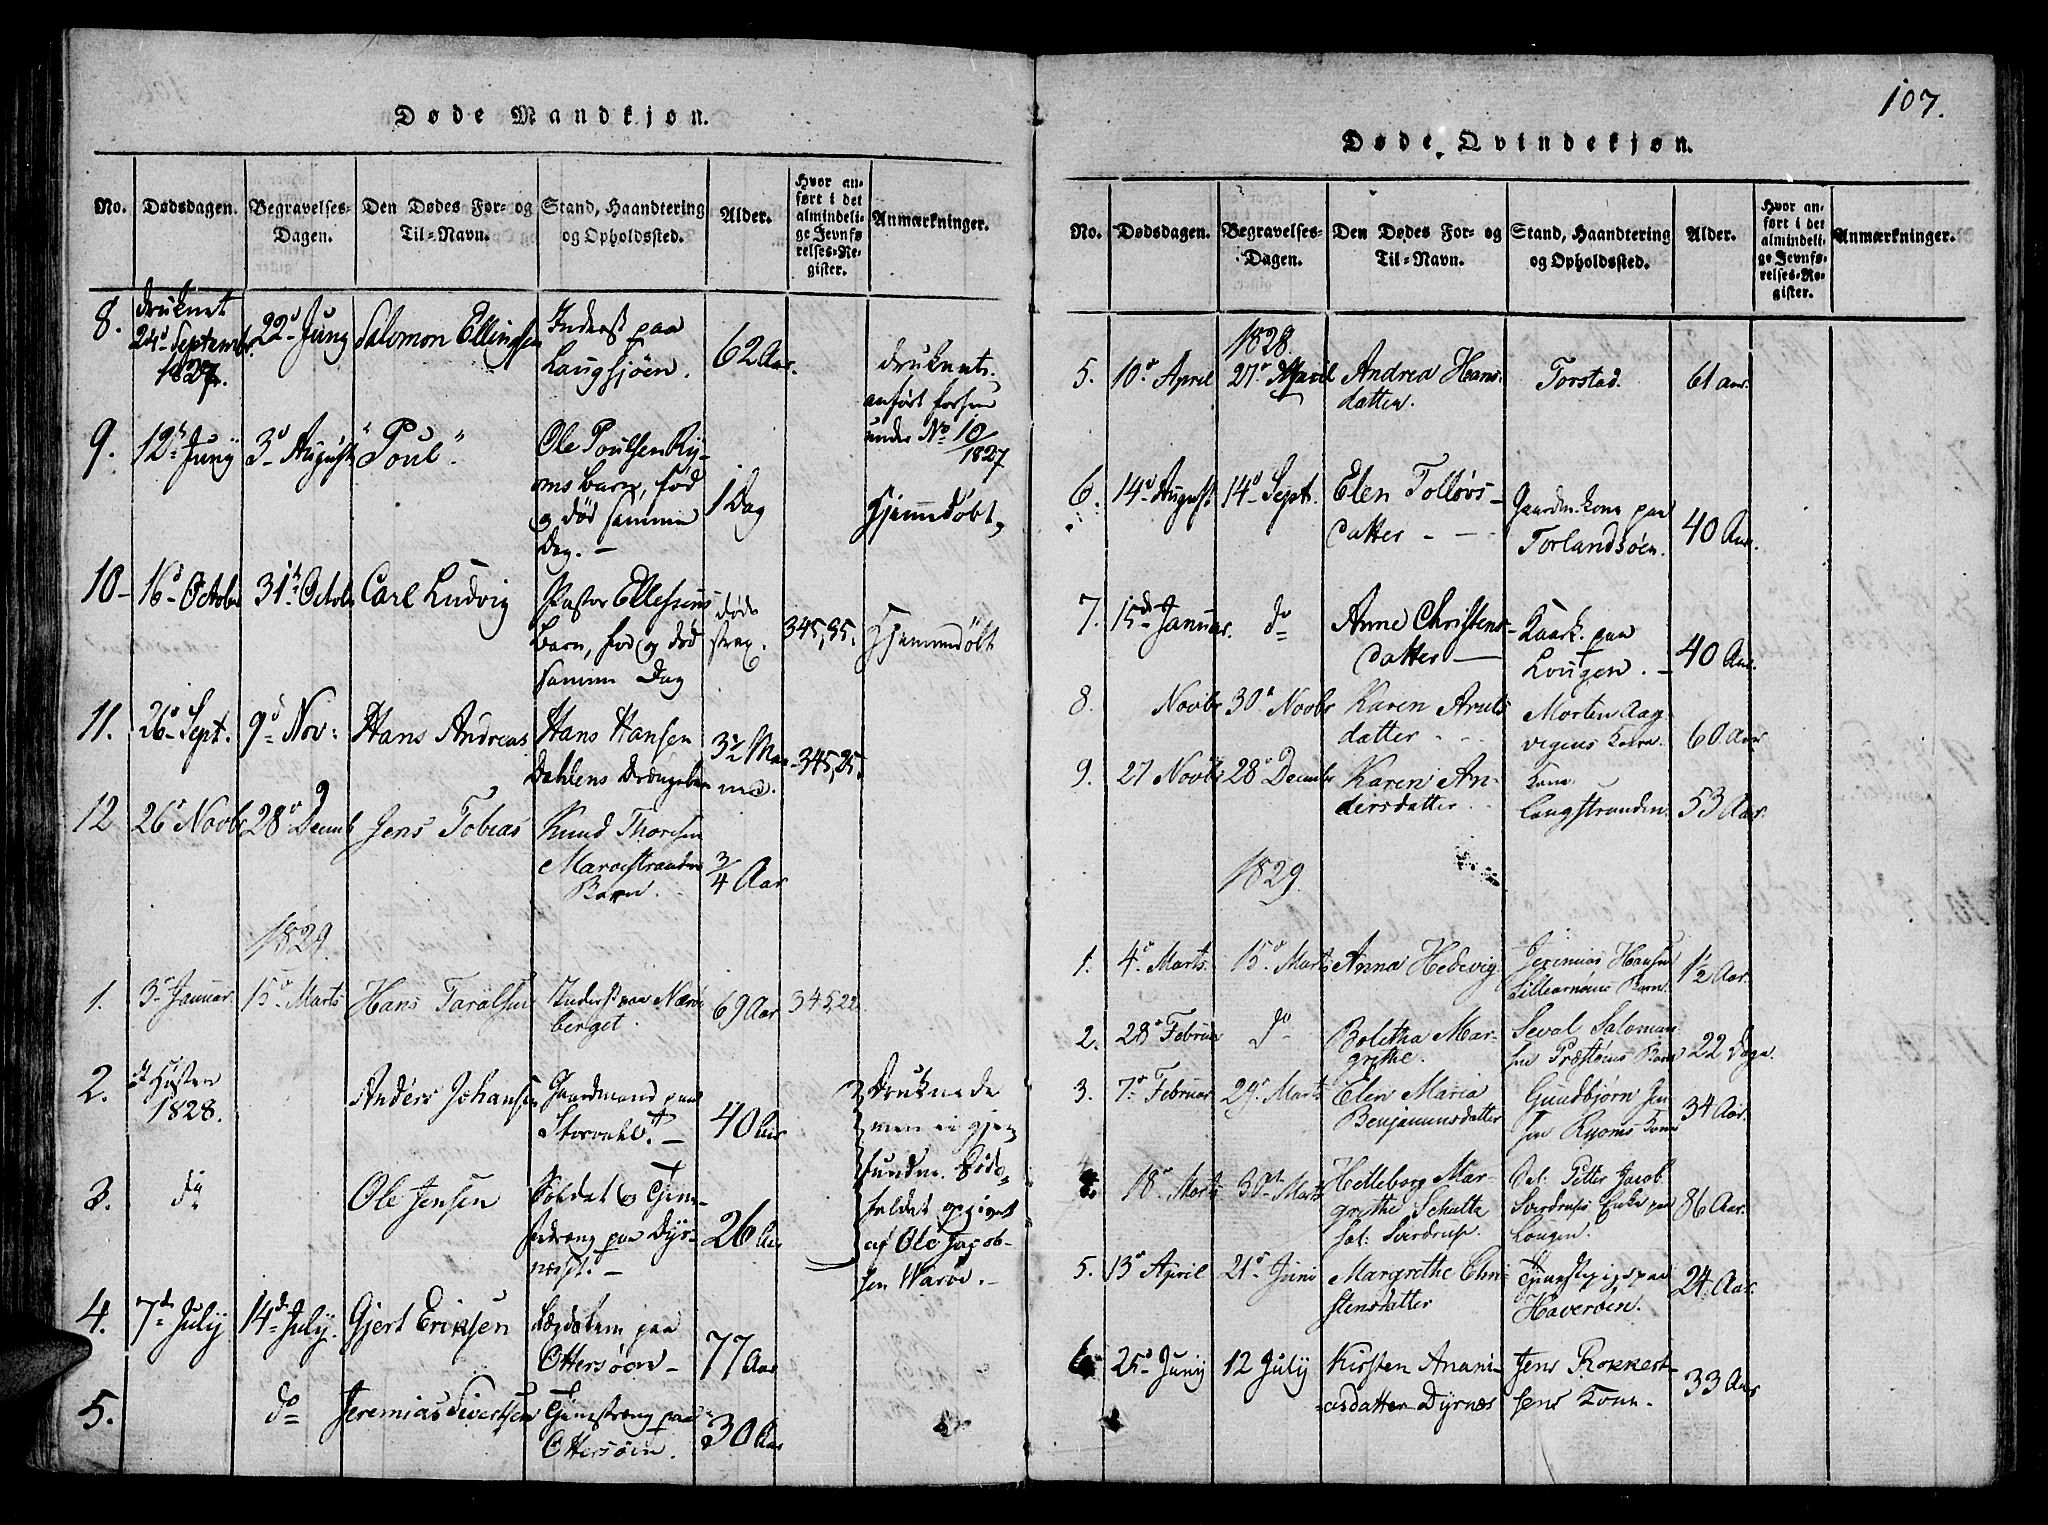 Døde Mandkjøn.
No.
Dødsdagen.
Begravelses-
Dagen.
Den Dødes For- og
Til-Navn.
Stand, Haandtering
og Opholdssted.
Alder.
Hvor an-
ført i det
almindeli-
ge Jevnfø-
relses-Re-
gister.
Anmærkninger.
8.
druknet
24d Septembr
1827.
22d Juny
Salomon Ellingsen
Inderst paa
Laugsjøen.
62 Aar.
druknet.
anført forhen
under No 10/1827
9.
12te Juny
3d August
"Poul"
Ole Poulsen Ry-
oms Barn, fød
og død samme
Dag. —
1 Dag
Hjemmedøbt
10
16d October
31te Octob
Carl Ludvig
Pastor Ellefsens
Barn, fød og død
samme Dag
døde
strax.
345,35.
Hjemmedøbt
11.
26d Sept.
9d Nov:
Hans Andreas
Hans Hansen
Dahlens Drengebarn
3½ Maa-
ned.
345,25.
12
26d Novbr
28d Decemb
Jens Tobias
Knud Thoresen
Barn
3/4 Aar
1829.
1.
3d Januar.
15d Marts
Hans Taralsen
Inderst paa Nærø-
berget.
69 Aar
345,22.
2.
Høsten
1828.
Anders Johansen
Gaardmand paa
40 Aar
Druknede
men ei gjen-
fundne. Døds-
faldet opgivet
af Ole Jacob-
sen Warøe. —
3.
do
Ole Jensen
Soldat og Tjene-
stedreng paa Dyr-
næsset. —
26 Aar
4.
7de July
14de July.
Gjert Eriksen
Lægdslem paa
Ottersøen —
77 Aar
5.
do
Jeremias Sivertsen
Tjenestdreng paa
Ottersøen.
30 Aar
107.
Døde Qvindekjøn.
No.
Dødsdagen.
Begravelses-
Dagen.
Den Dødes For- og
Til-Navn.
Stand, Haandtering
og Opholdssted.
Alder.
Hvor an-
ført i det
almindeli-
ge Jevnfø-
relses-Re-
gister.
Anmærkninger.
1828.
5.
10d April
27d April
Andrea Hans-
datter.
Torstad.
61 aar.
6.
14d August
14d Sept.
Elen Tolløvs-
datter - —
Gaardm. kone paa
Torlandsøen.
40 Aar.
7.
15de Januar.
do
Anne Christens-
datter —
paa
Lougen. —
40 Aar
8.
Novbr
30d Novbr
Karen Arnts
datter - - -
Morten Aag-
vigens Kone.
60. Aar
9.
27 Novbr
28d Decembr
Karen An-
dersdatter
Kone
Langstranden
53 Aar.
1829.
1.
4d Marts.
15d Marts
Anna Hedevig
Jeremias Hansen
Lillearnøens Barn.
1½ Aar.
2.
28d Februar
do
Boletha Mar-
grethe.
Seval Salomon-
sen Præstøens Barn
22 Dage.
3.
7d Februar
29d Marts
Elen Maria
Benjaminsdatter
Gundbjørn Jen-
sen Ryoms Kone
34 Aar.
4
18d Marts
30te Marts
Helleborg Mar-
grethe Schultz
sal: Sverdrup.
Sal. Petter Jacob
Sverdrups Enke paa
Lougen.
86 Aar.
5.
13d April
21d Juni
Margrethe Chri-
stensdatter
Tjenestepige paa
Haverøen.
24 Aar.
6
25d Juny
12 July
Kirsten Anani-
asdatter Dyrnæs
Jens Rokkert-
sens Kone.
33 Aar